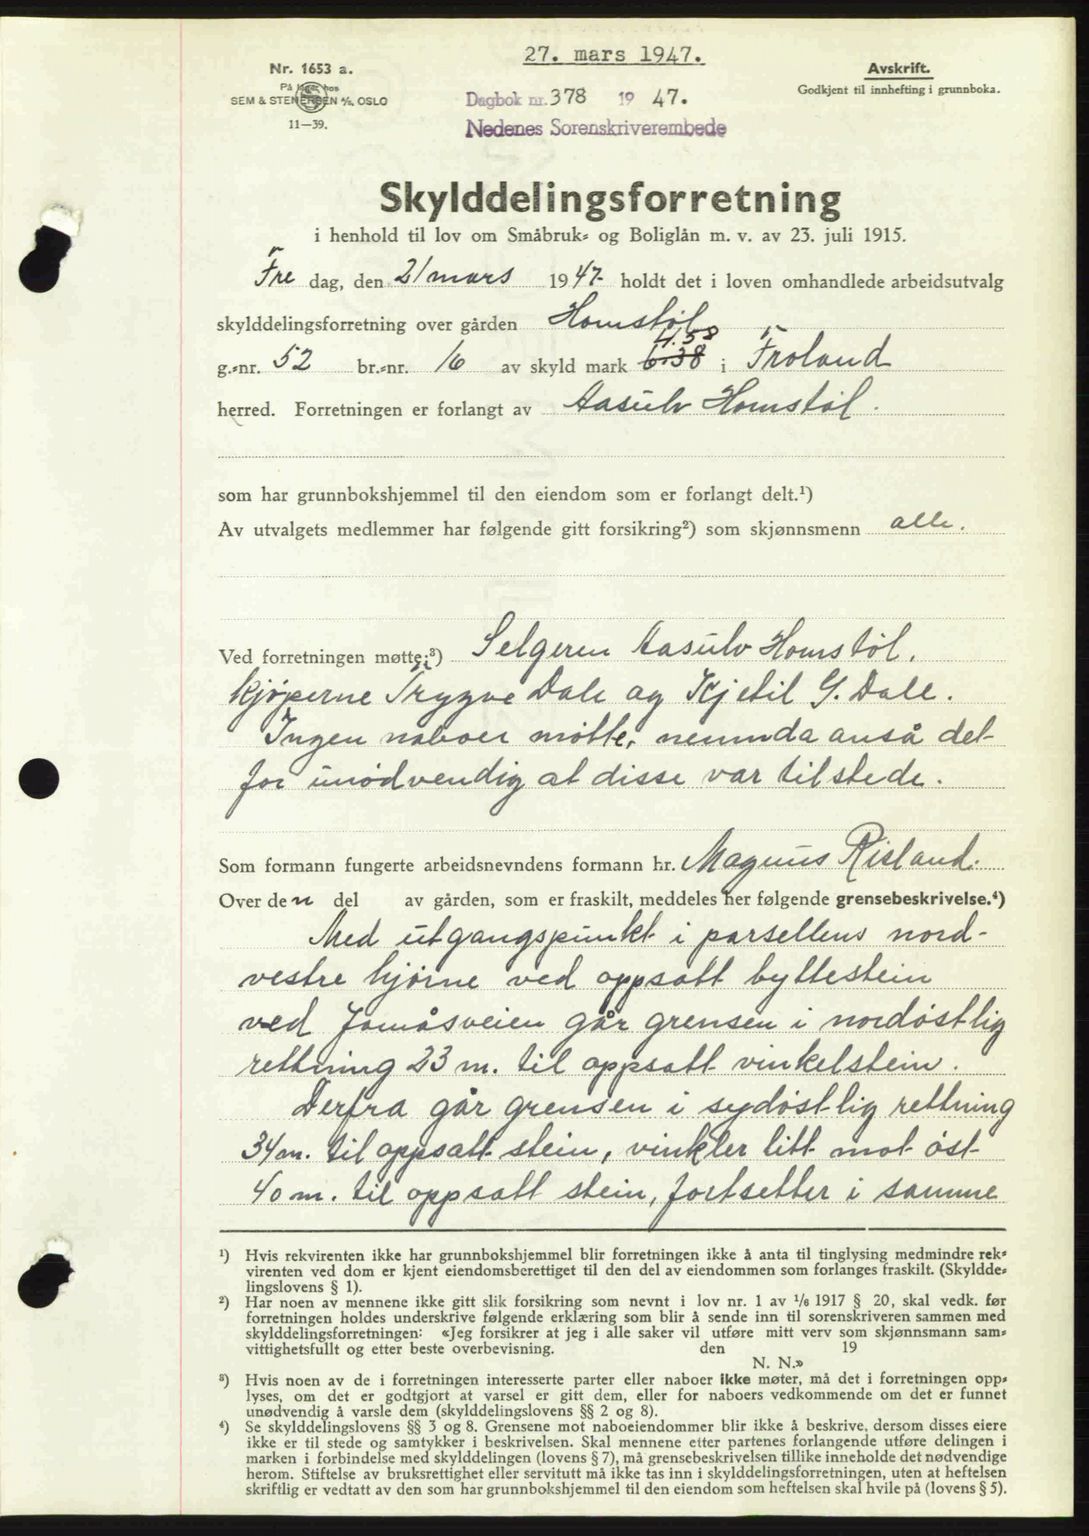 27. mars 1947.
Nr. 1653 a.
På lager hos
SEM & STENERSEN A/S, OSLO
11—39.
Dagbok nr. 378 1947.
Nedenes Sorenskriverembede
Avskrift.
Godkjent til innhefting i grunnboka.
Skylddelingsforretning
i henhold til lov om Småbruk- og Boliglån m. v. av 23. juli 1915.
Fre dag, den 21 mars 1947 holdt det i loven omhandlede arbeidsutvalg
skylddelingsforretning over gården Homstøl
4.58
g.-nr. 52 br.-nr. 16 av skyld mark 6.38 i Froland
herred. Forretningen er forlangt av Aasulv Homstøl.
som har grunnbokshjemmel til den eiendom som er forlangt delt.¹)
Av utvalgets medlemmer har følgende gitt forsikring²) som skjønnsmenn alle.
Ved forretningen møtte:³) Selgeren Aasulv Homstøl.
kjøperne Trygve Dale og Kjetil G. Dale.
Ingen naboer møtte, nemnda anså det
for unødvendig at disse var tilstede.
Som formann fungerte arbeidsnevndens formann hr. Magnus Risland.
Over den del av gården, som er fraskilt, meddeles her følgende grensebeskrivelse.⁴)
Med utgangspunkt i parsellens nord-
vestre hjørne ved oppsatt byttestein
ved Jomåsveien går grensen i nordøstlig
rettning 23 m. til oppsatt vinkelstein.
Derfra går grensen i sydøstlig rettning
34 m. til oppsatt stein, vinkler litt mot øst
40 m. til oppsatt stein, fortsetter i samme
¹) Hvis rekvirenten ikke har grunnbokshjemmel blir forretningen ikke å anta til tinglysing medmindre rek-
virenten ved dom er kjent eiendomsberettiget til den del av eiendommen som forlanges fraskilt. (Skyldde-
lingslovens § 1).
²) Har noen av mennene ikke gitt slik forsikring som nevnt i lov nr. 1 av 1/6 1917 § 20, skal vedk. før
forretningen holdes underskrive følgende erklæring som blir å sende inn til sorenskriveren sammen med
skylddelingsforretningen: «Jeg forsikrer at jeg i alle saker vil utføre mitt verv som skjønnsmann sam-
vittighetsfullt og etter beste overbevisning. den 19
N. N.»
³) Hvis noen av de i forretningen interesserte parter eller naboer ikke møter, må det i forretningen opp-
lyses, om det er godtgjort at varsel er gitt dem, eller for naboers vedkommende om det er funnet
unødvendig å varsle dem (skylddelingslovens §§ 2 og 8).
⁴) Se skylddelingslovens §§ 3 og 8. Grensene mot naboeiendommer blir ikke å beskrive, dersom disses eiere
ikke er til stede og samtykker i beskrivelsen. Skal mennene etter partenes forlangende utføre delingen i
marken i forbindelse med skylddelingen (lovens § 7), må grensebeskrivelsen tillike inneholde det nødvendige
herom. Stiftelse av bruksrettighet eller servitutt må ikke tas inn i skylddelingsforretningen, uten at heftelsen
skriftlig er vedtatt av den som har grunnbokshjemmel til den eiendom som heftelsen skal hvile på (lovens § 5).